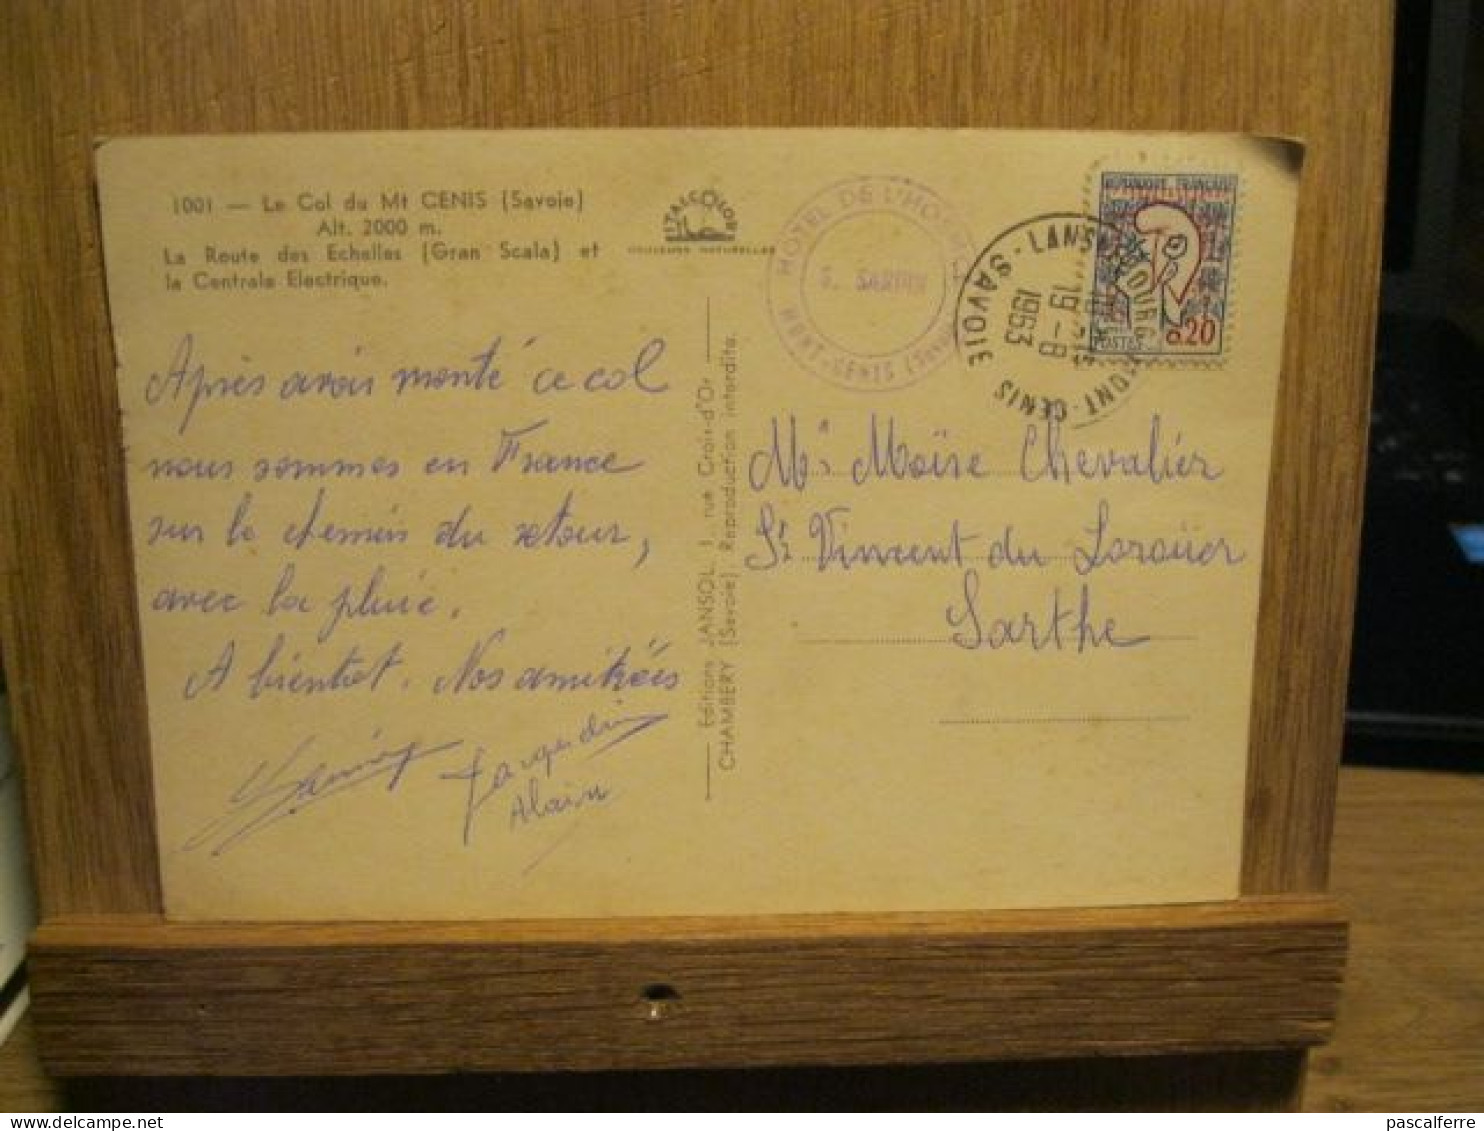 1001 — Le Col du Mt CENIS (Savoie)
Alt. 2000 m.
La Route des Echelles (Gran Scala) et
la Centrale Electrique.
ITALCOLOR
COULEURS NATURELLES
HOTEL DE L'HOSP
MONT-CENIS (Savoie)
LANSLEBOURG-MONT-CENIS
SAVOIE
19-8
1963
REPUBLIQUE FRANÇAISE
POSTES
0.20
Après avoir monté ce col
nous sommes en France
sur le chemin du retour,
avec la pluie.
A bientot. Nos amitiées
Jacqueline
Alain
Editions JANSOL, 1, rue Croix-d'Or
CHAMBERY (Savoie) Reproduction interdite.
Mr Moïse Chevalier
St Vincent du Loroüer
Sarthe
pascalferre